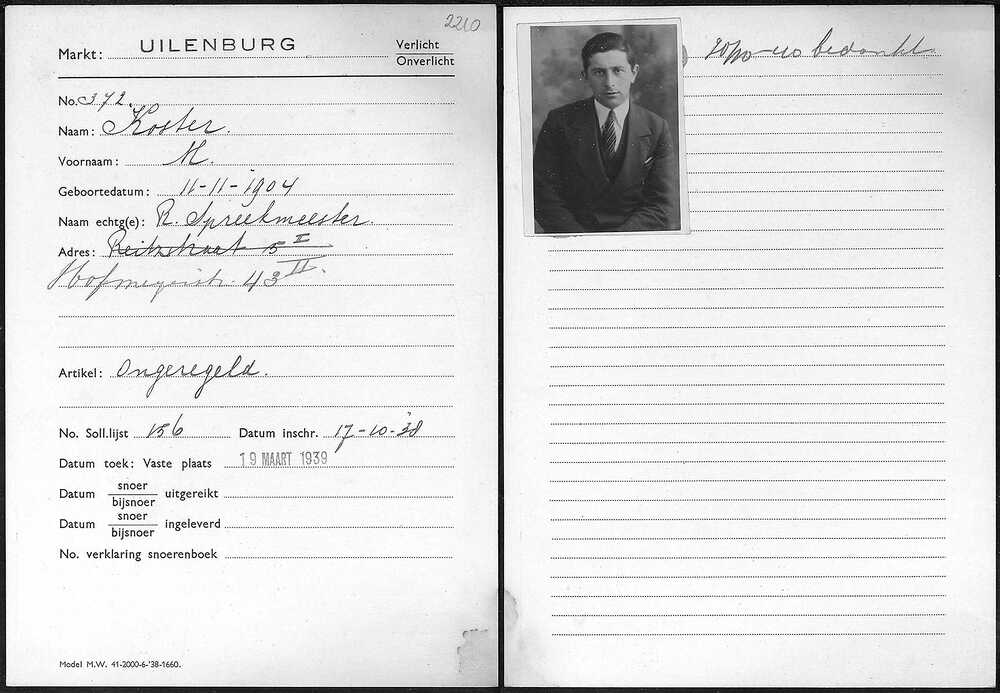 2210
Markt: UILENBURG Verlicht
Onverlicht
No. 372.
Naam: Koster.
Voornaam: M.
Geboortedatum: 11-11-1904
Naam echtg(e): R. Spreekmeester.
Adres: Reitzstraat 5 I
Hofmeyrstr. 43 II.
Artikel: Ongeregeld.
No. Soll.lijst 156 Datum inschr. 17-10-38
Datum toek: Vaste plaats 19 MAART 1939
Datum snoer
bijsnoer uitgereikt
Datum snoer
bijsnoer ingeleverd
No. verklaring snoerenboek
Model M.W. 41-2000-6-'38-1660.
bedankt